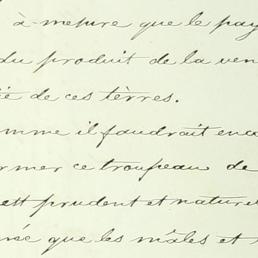 à mesure que le pay
du produit de la ven
de ces tèrres.
omme il faudrait enco
rmer ce troupeau de
est prudent et naturel
que les mâles et